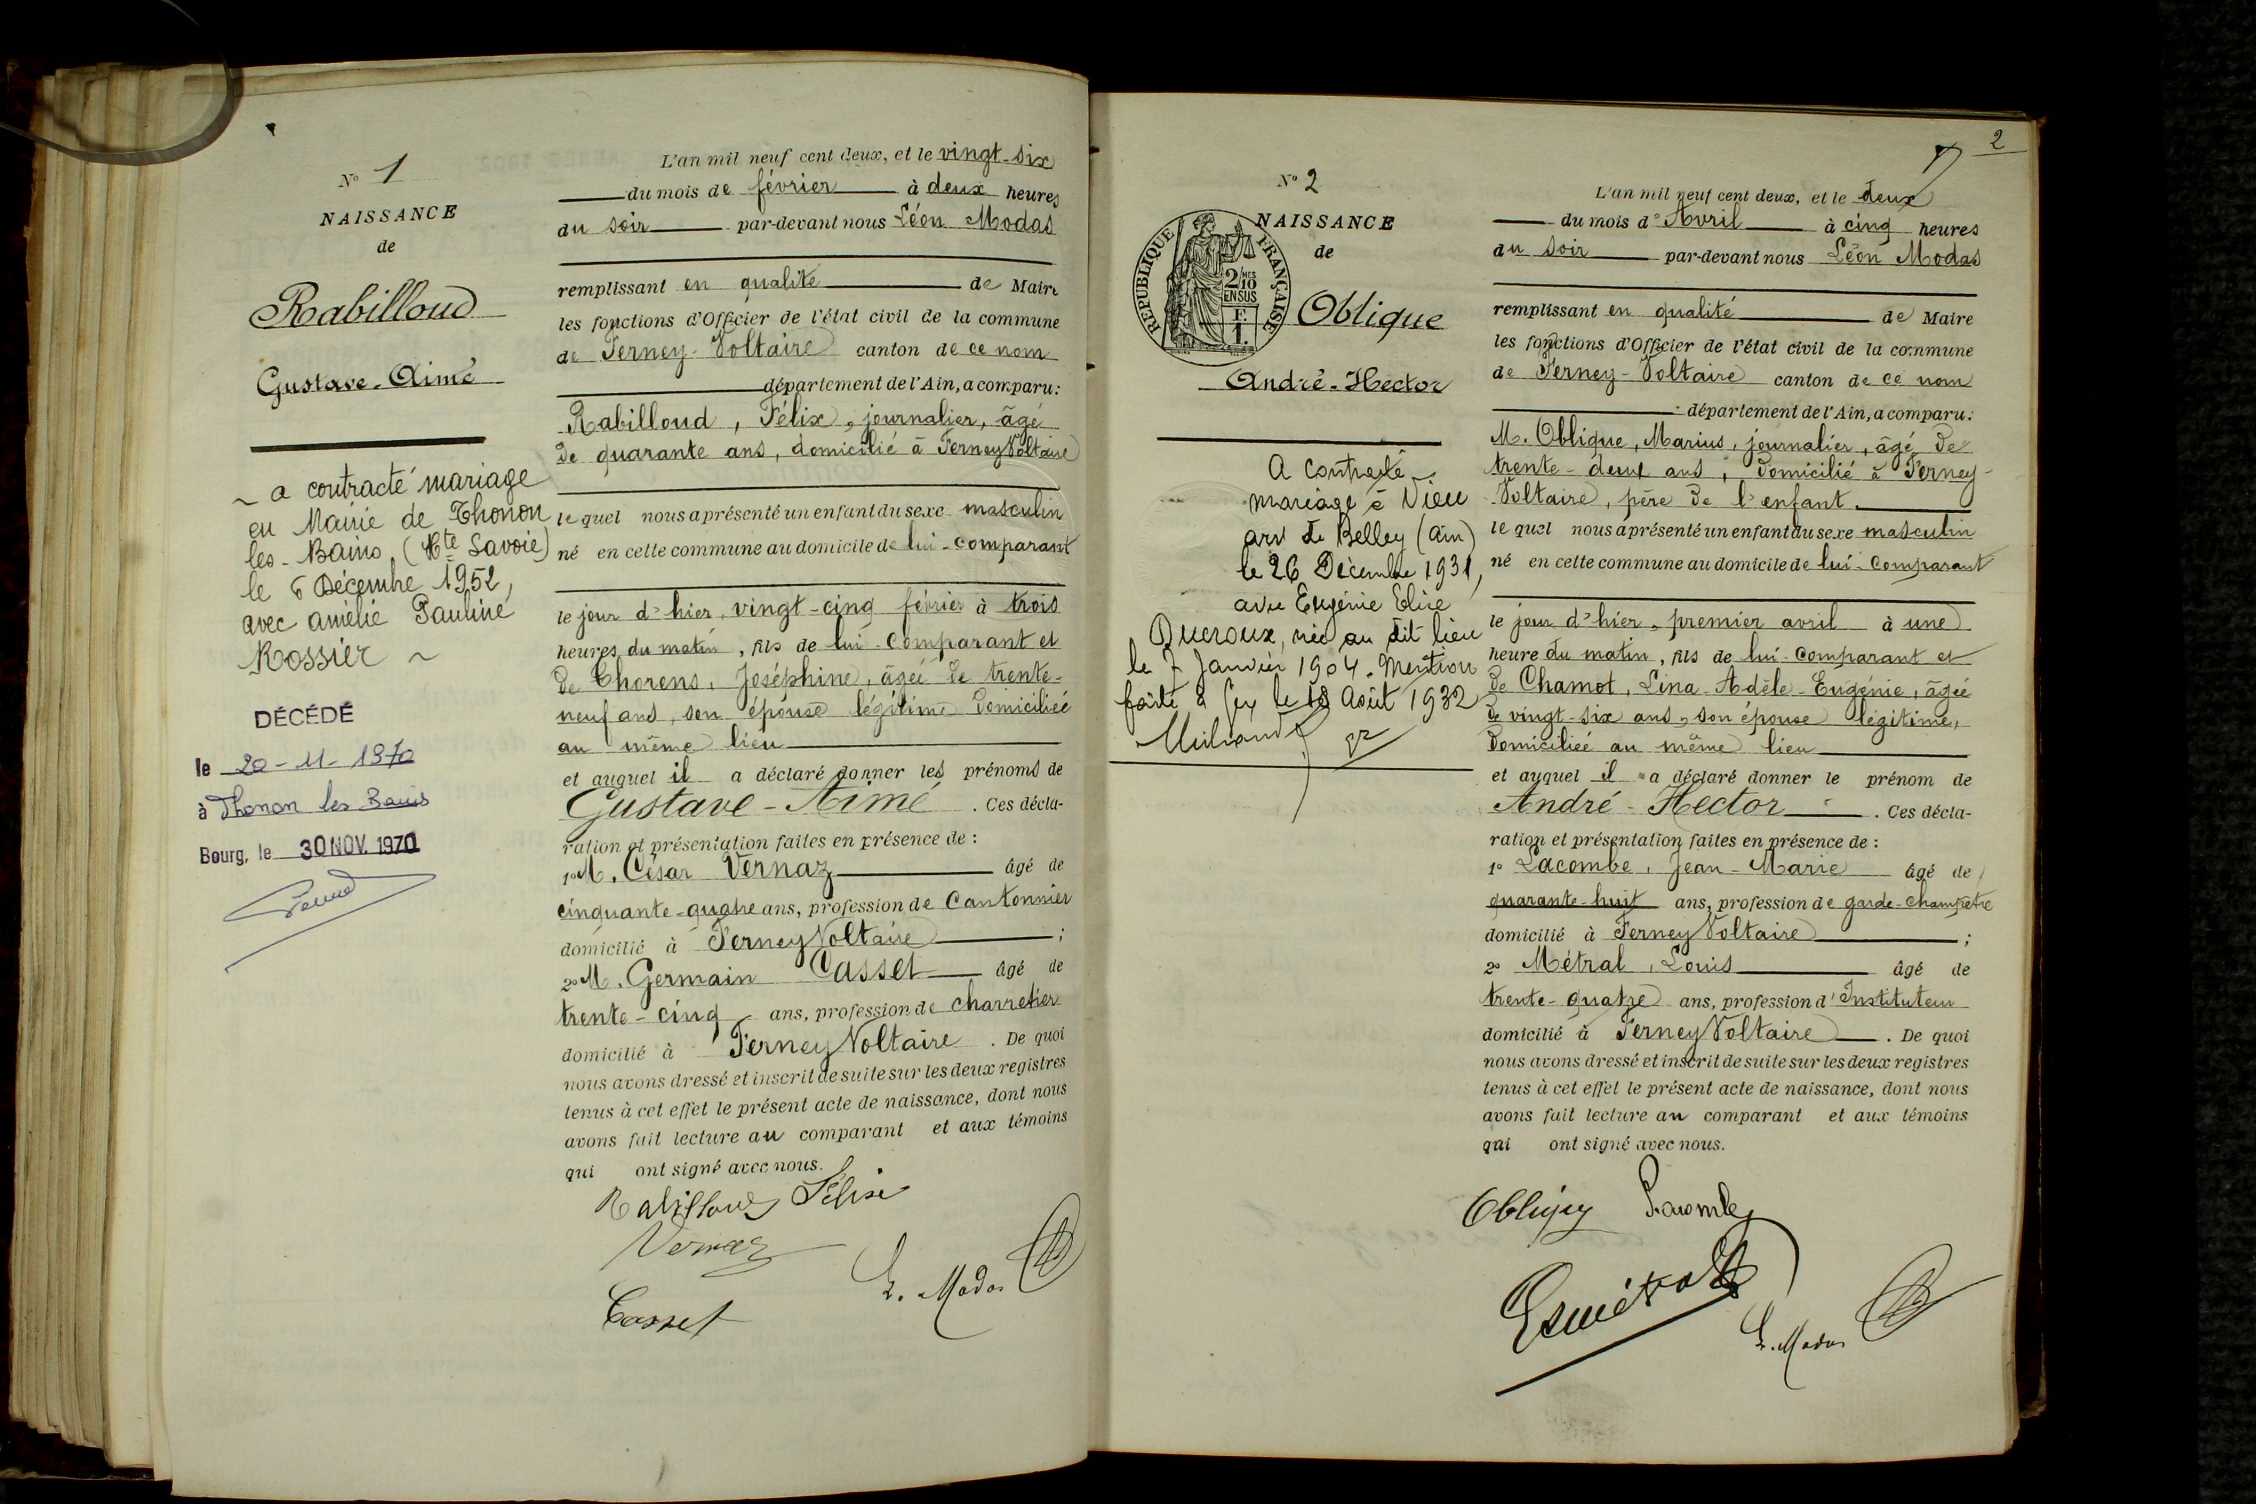 Nº 1
NAISSANCE
de
Rabilloud
Gustave-Aimé
~ a contracté mariage
en Mairie de Thonon
les-Bains (Hte Savoie)
le 6 Décembre 1952,
avec Amélie Pauline
Rossier ~
DÉCÉDÉ
le 20-11-1970
à Thonon les Bains
Bourg, le 30 NOV. 1970
L'an mil neuf cent deux, et le vingt-six
du mois de février à deux heures
du soir par-devant nous Léon Modas
remplissant en qualité de Maire
les fonctions d'Officier de l'état civil de la commune
de Ferney-Voltaire canton de ce nom
département de l'Ain, a comparu:
Rabilloud, Félix, journalier, âgé
de quarante ans, domicilié à Ferney Voltaire
lequel nous a présenté un enfant du sexe masculin
né en cette commune au domicile de lui-comparant
le jour d'hier, vingt-cinq février à trois
heures du matin, fils de lui-comparant et
de Thorens, Joséphine, âgée de trente-
neuf ans, son épouse légitime domiciliée
au même lieu
et auquel il a déclaré donner les prénoms de
Gustave-Aimé. Ces décla-
ration et présentation faites en présence de :
1º M. César Vernaz âgé de
cinquante-quatre ans, profession de Cantonnier
domicilié à Ferney Voltaire ;
2º M. Germain Casset âgé de
trente-cinq ans, profession de charretier
domicilié à Ferney Voltaire. De quoi
nous avons dressé et inscrit de suite sur les deux registres
tenus à cet effet le présent acte de naissance, dont nous
avons fait lecture au comparant et aux témoins
qui ont signé avec nous.
Rabilloud Félix
Vernaz
Casset
L. Modas
2
Nº 2
NAISSANCE
de
RÉPUBLIQUE FRANÇAISE
2/10 MES
EN SUS
F.
1.
Oblique
André-Hector
A contracté
mariage à Vieu
arrt de Belley (Ain)
le 26 Décembre 1931,
avec Eugénie Elise
Ducroux, née au dit lieu
le 7 Janvier 1904. Mention
faite à Gex le 18 Août 1932
L'an mil neuf cent deux, et le deux
du mois d'Avril à cinq heures
du soir par-devant nous Léon Modas
remplissant en qualité de Maire
les fonctions d'Officier de l'état civil de la commune
de Ferney-Voltaire canton de ce nom
département de l'Ain, a comparu:
M. Oblique, Marius, journalier, âgé de
trente-deux ans, domicilié à Ferney-
Voltaire, père de l'enfant.
lequel nous a présenté un enfant du sexe masculin
né en cette commune au domicile de lui-comparant
le jour d'hier, premier avril à une
heure du matin, fils de lui-comparant et
de Chamot, Lina-Adèle-Eugénie, âgée
de vingt-six ans, son épouse légitime,
domiciliée au même lieu
et auquel il a déclaré donner le prénom de
André-Hector. Ces décla-
ration et présentation faites en présence de :
1º Lacombe, Jean-Marie âgé de
quarante-huit ans, profession de garde-champêtre
domicilié à Ferney Voltaire ;
2º Métral, Louis âgé de
trente-quatre ans, profession d'Instituteur
domicilié à Ferney Voltaire. De quoi
nous avons dressé et inscrit de suite sur les deux registres
tenus à cet effet le présent acte de naissance, dont nous
avons fait lecture au comparant et aux témoins
qui ont signé avec nous.
Lacombe
L. Modas